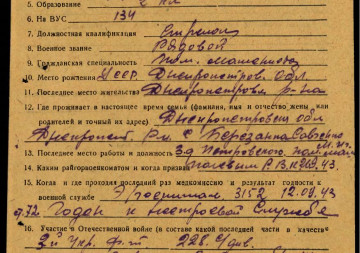 5. Образование 2 кл
6. На ВУС 134
7. Должностная квалификация Стрелок
8. Военное звание Рядовой
9. Гражданская специальность
10. Место рождения Усср. Днепропетров. Обл.
11. Последнее место жительства Днепропетровск. р-на
12. Где проживает в настоящее время семья (фамилия, имя и отчество жены или
родителей и точный адрес) Днепропетровск обл
Днепропет. р-н. с.
13. Последнее место работы и должность З-д Петровского
14. Каким райгорвоенкоматом и когда призван Р.В.К 43.
15. Когда и где проходил последний раз медкомиссию и результат годности к
военной службе Э/госпиталь 3152 12.04.43
Годен к нестроевой Службе
16. Участие в Отечественной войне (в составе какой последней части и в качестве
3й Укр. ф-т. 228 с/див.